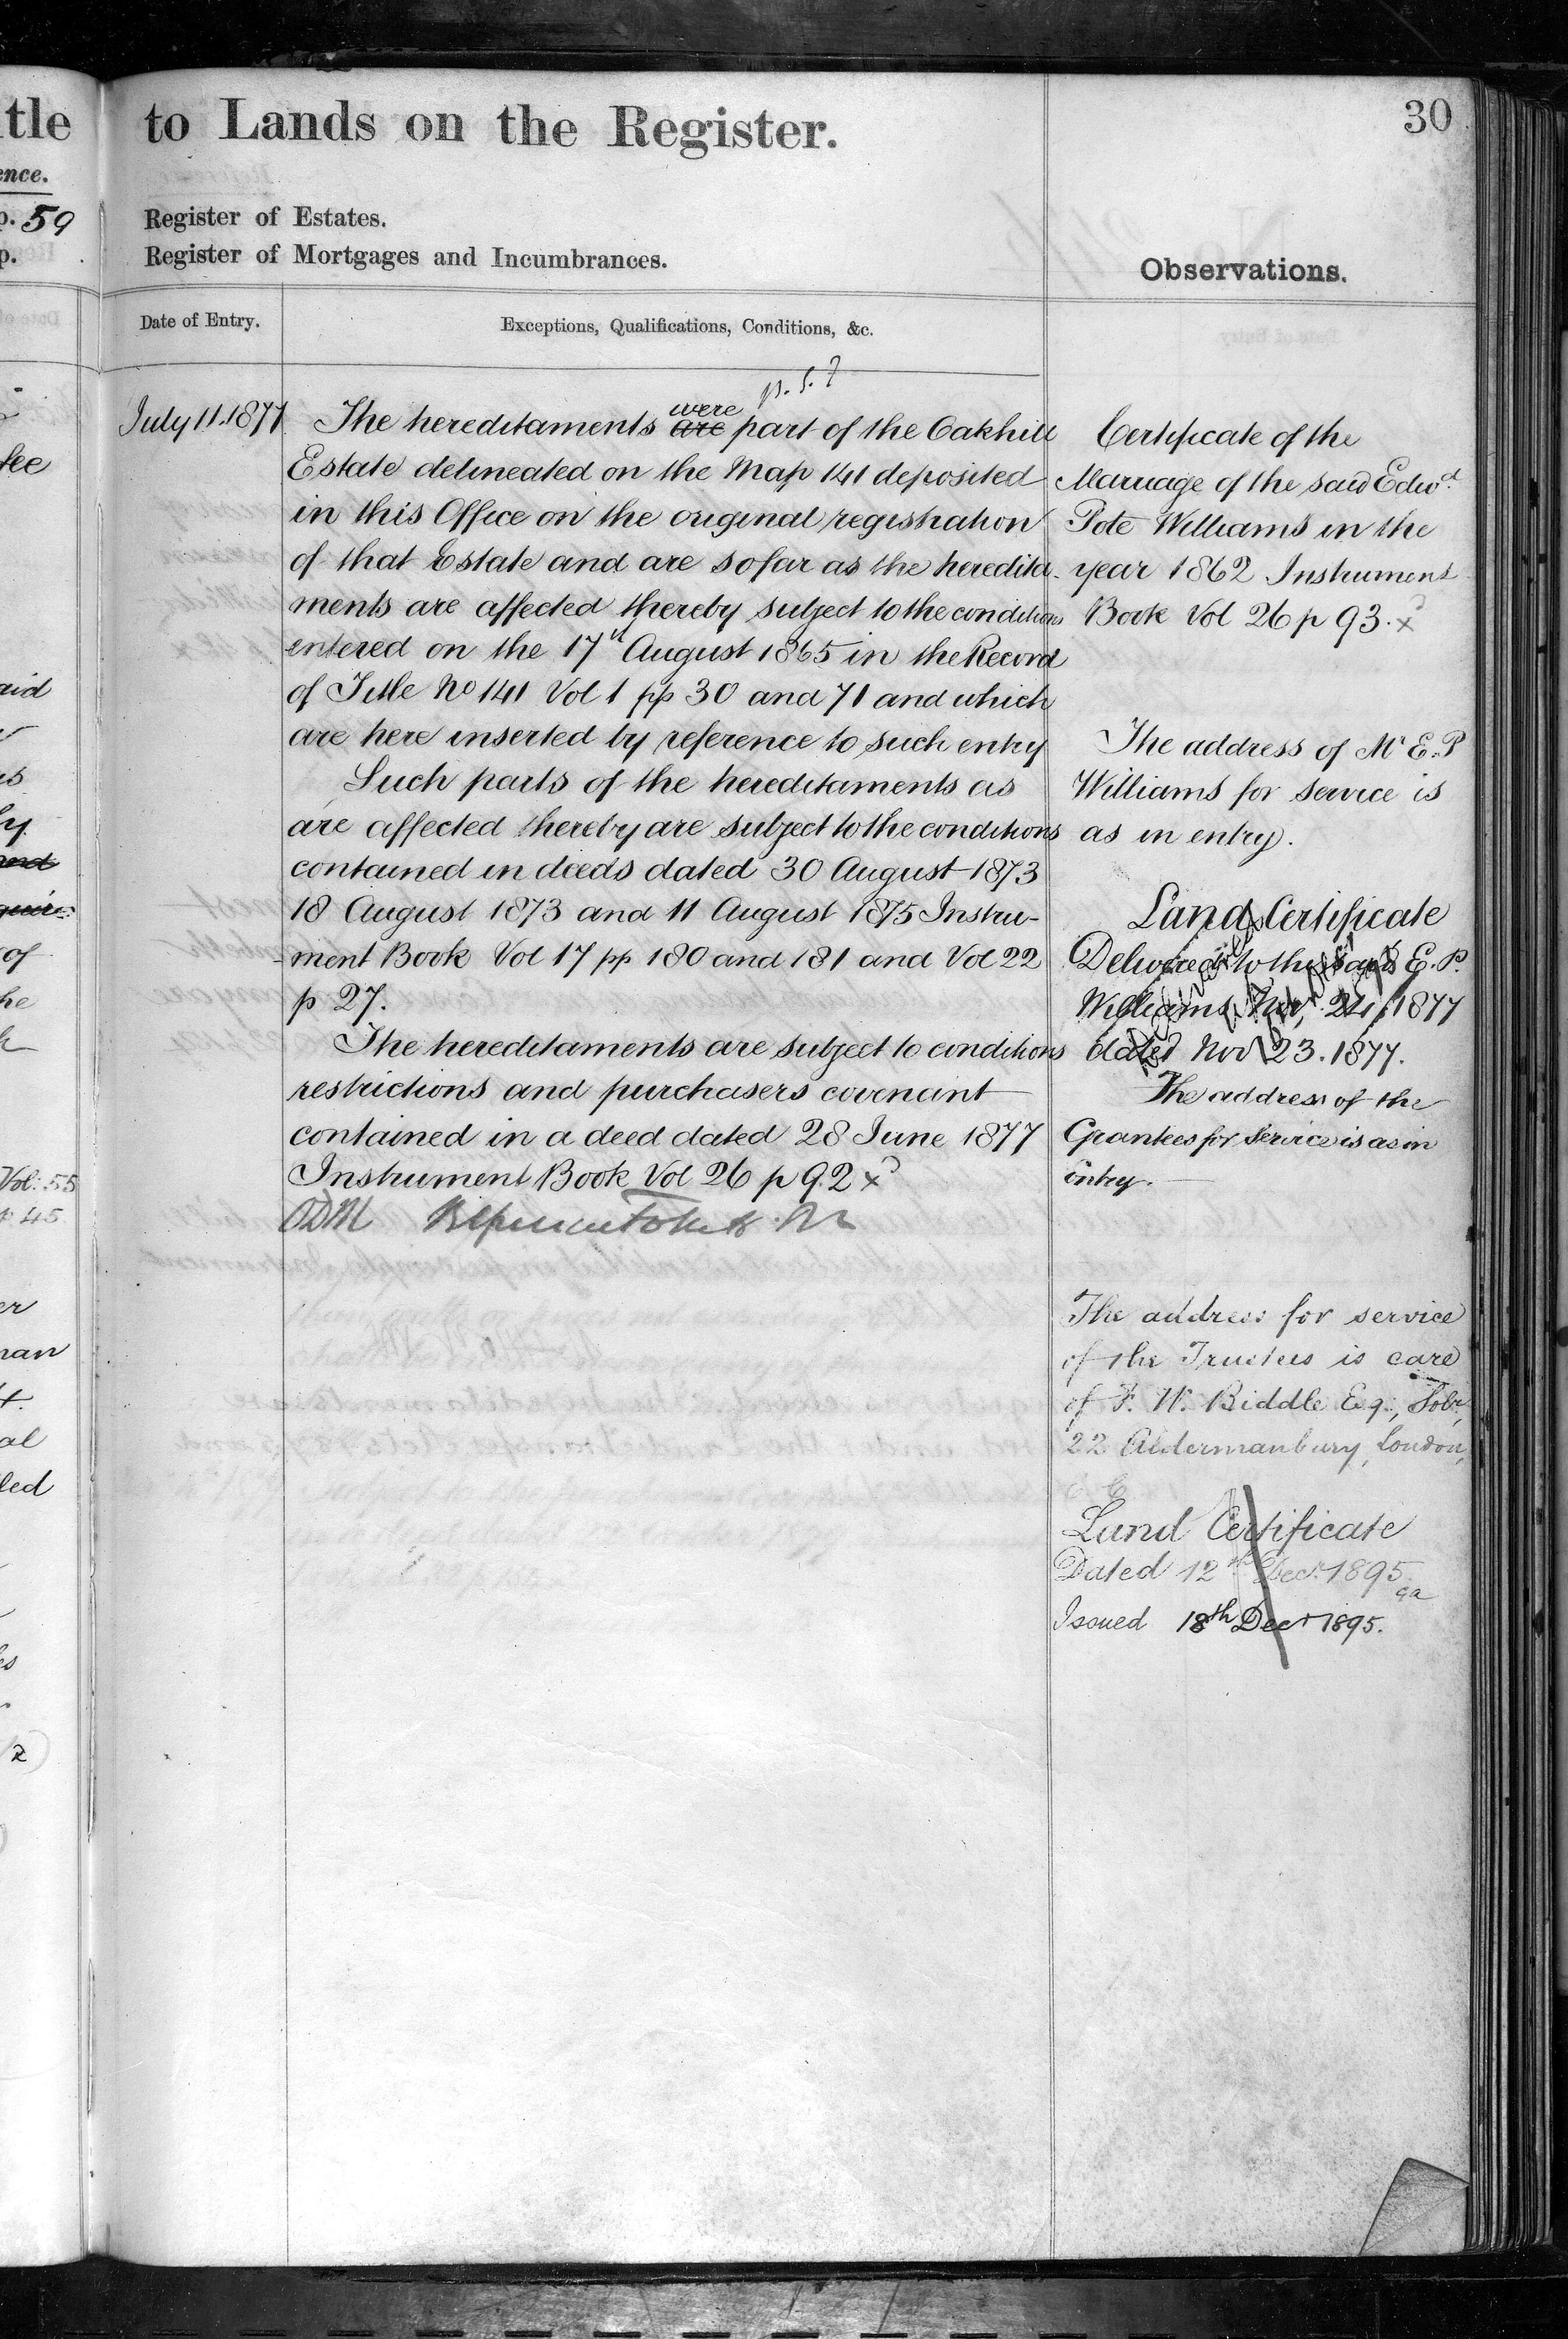 30
tle to Lands on the Register.
ence.
p. 59 Register of Estates.
p. Register of Mortgages and Incumbrances.
Observations.
Date of Entry.
Exceptions, Qualifications, Conditions, &c.
July 11. 1877
were
The hereditaments are part of the Oakhill
Estate delineated on the Map 141 deposited
in this Office on the original registration
of that Estate and are so far as the heredita-
ments are affected thereby subject to the conditions
entered on the 17th August 1865 in the Record
of Title No 141 Vol 1 pp 30 and 71 and which
are here inserted by reference to such entry
Such parts of the hereditaments as
are affected thereby are subject to the conditions
contained in deeds dated 30 August 1873
18 August 1873 and 11 August 1875 Instru-
ment Book Vol 17 pp 180 and 181 and Vol 22
p 27.
The hereditaments are subject to conditions
restrictions and purchasers covenant
contained in a deed dated 28 June 1877
Instrument Book Vol 26 p 92 x
Certificate of the
Marriage of the said Edwd.
Pote Williams in the
year 1862 Instrument
Book Vol 26 p 93. x
The address of Mr E. P
Williams for service is
as in entry.
Land Certificate
Delivered to the said E. P.
Williams Nov, 24, 1877
dated Nov 23. 1877.
The address of the
Grantees for Service is as in
entry.
The address for service
of the Trustees is care
of F. W. Biddle Esq:, Solr,
22 Aldermanbury, London,
E. C.
Land Certificate
Dated 12th Decr. 1895.
Issued 18th Decr 1895.
fee
aid
ly
and
of
he
Vol: 55
p 45
er
man
al
led